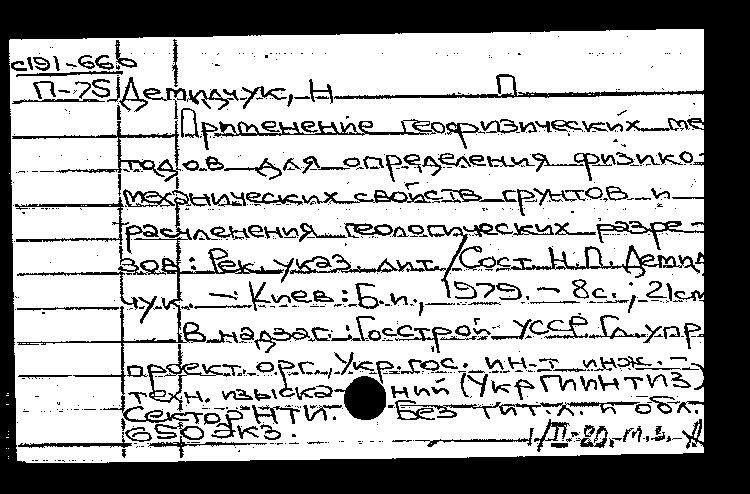 с191-66.0
П-75 Демидчук, Н П
Применение геофизических ме
тодов для определения физико-
механических свойств грунтов и
расчленения геологических разре-
зов: Рек. указ. лит. / Сост. Н.П. Демид
чук. - Киев: Б.и., 1979. - 8 с.; 21 см
В надзаг.: Госстрой УССР. Гл. упр.
проект. орг., Укр. гос. ин-т инж.-
техн. изысканий (УкрГИИНТИЗ)
Сектор НТИ. Без тит. л. и обл.
650 экз.
1/II-80. т. з.